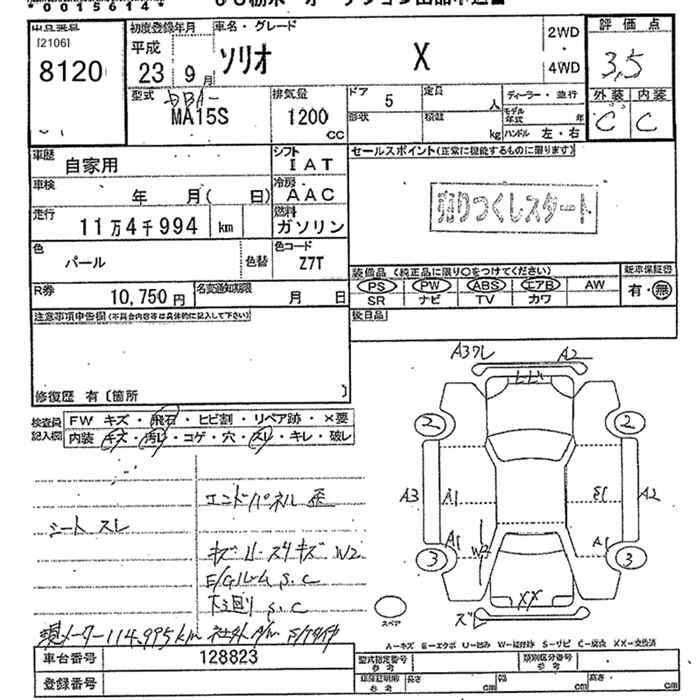 *00156144*
出品番号
[2106]
8120
初度登録年月
平成
23年 9月
車名・グレード
ソリオ X
2WD
4WD
評価点
3.5
外装 内装
C C
型式 DBA-
MA15S
排気量
1200
cc
ドア 5
形状
定員 人
積載 kg
ディーラー・並行
モデル年式 年
ハンドル 左・右
車歴 自家用
シフト IAT
車検 年 月( 日)
冷房 AAC
走行 11万4千994 km
燃料 ガソリン
色 パール
色替
色コード Z7T
R券 10,750円
名変通知期限 月 日
セールスポイント(正常に機能するものに限ります)
売りつくしスタート
装備品 (純正品に限り○をつけてください)
新車保証書
PS PW ABS エアB AW
SR ナビ TV カワ
有・無
後日品
注意事項申告欄(不具合内容等は具体的に記入して下さい)
修復歴 有〔箇所 〕
検査員記入欄
FW キズ・飛石・ヒビ割・リペア跡・×要
内装 キズ・汚れ・コゲ・穴・スレ・キレ・破レ
シート スレ
キズ W2
E/Gルーム S.C
下廻り S.C
現メーター114,995km
A2
2 2
A3 A1 A2
A1 W2 A1
3 3
XX
スペア
A-キズ E-エクボ U-凹み W-補修跡 S-サビ C-腐食 XX-交換済
車台番号 128823
登録番号
型式指定番号 参考
類別区分番号 参考
車庫証明用 参考 長さ cm 幅 cm 高さ cm